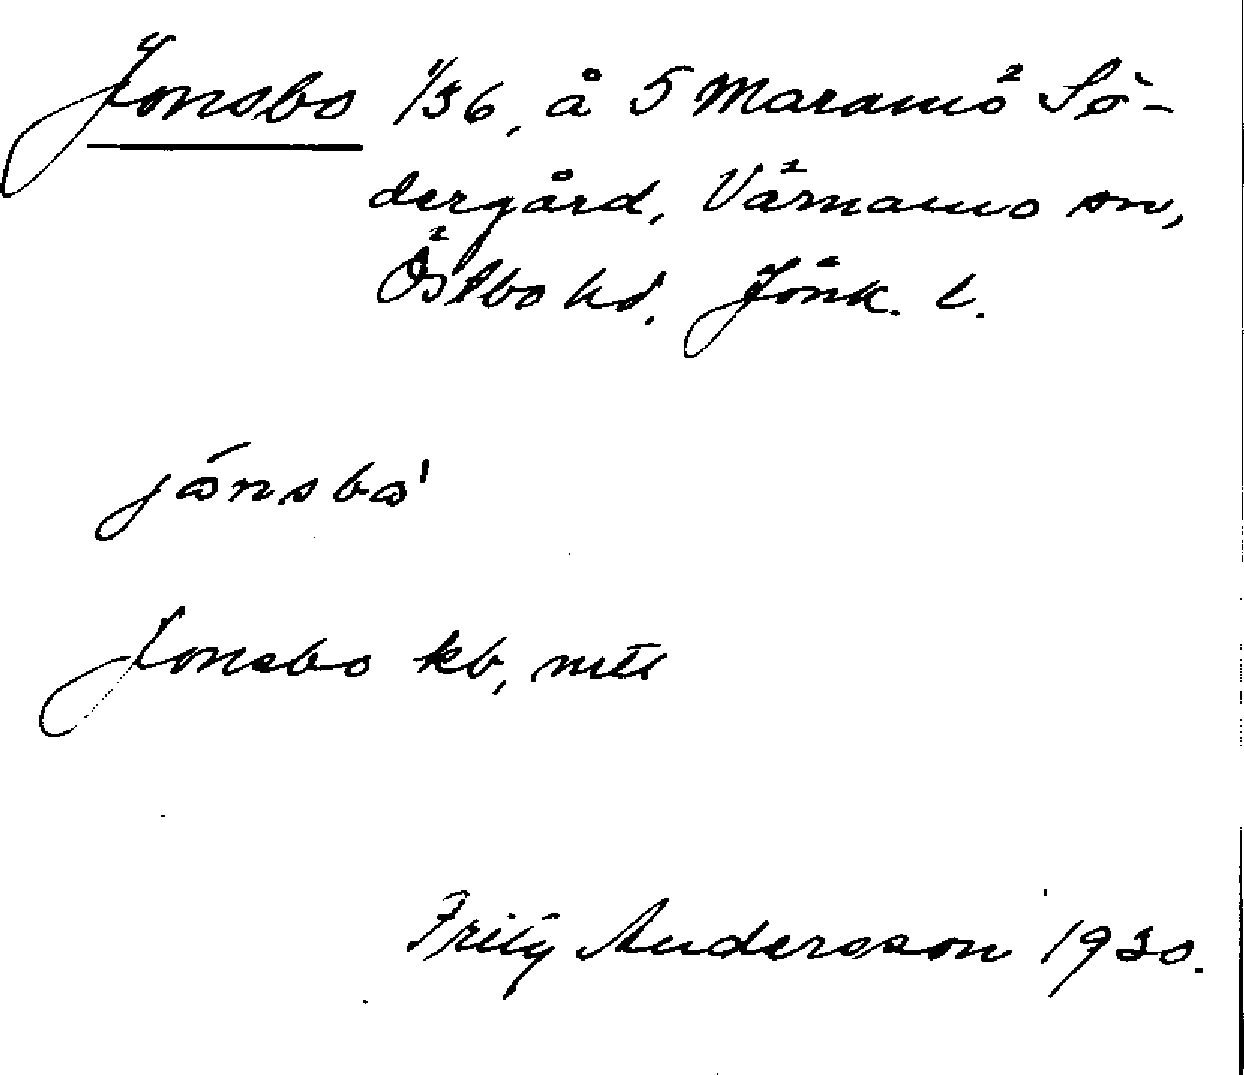 Jonsbo 1/36, å 5 Maramö Sö-
dergård, Värnamo sn,
Östbo hd. Jönk. l.
jónsbo'
Jonsbo kb, mtl
Fritz Andersson 1930.